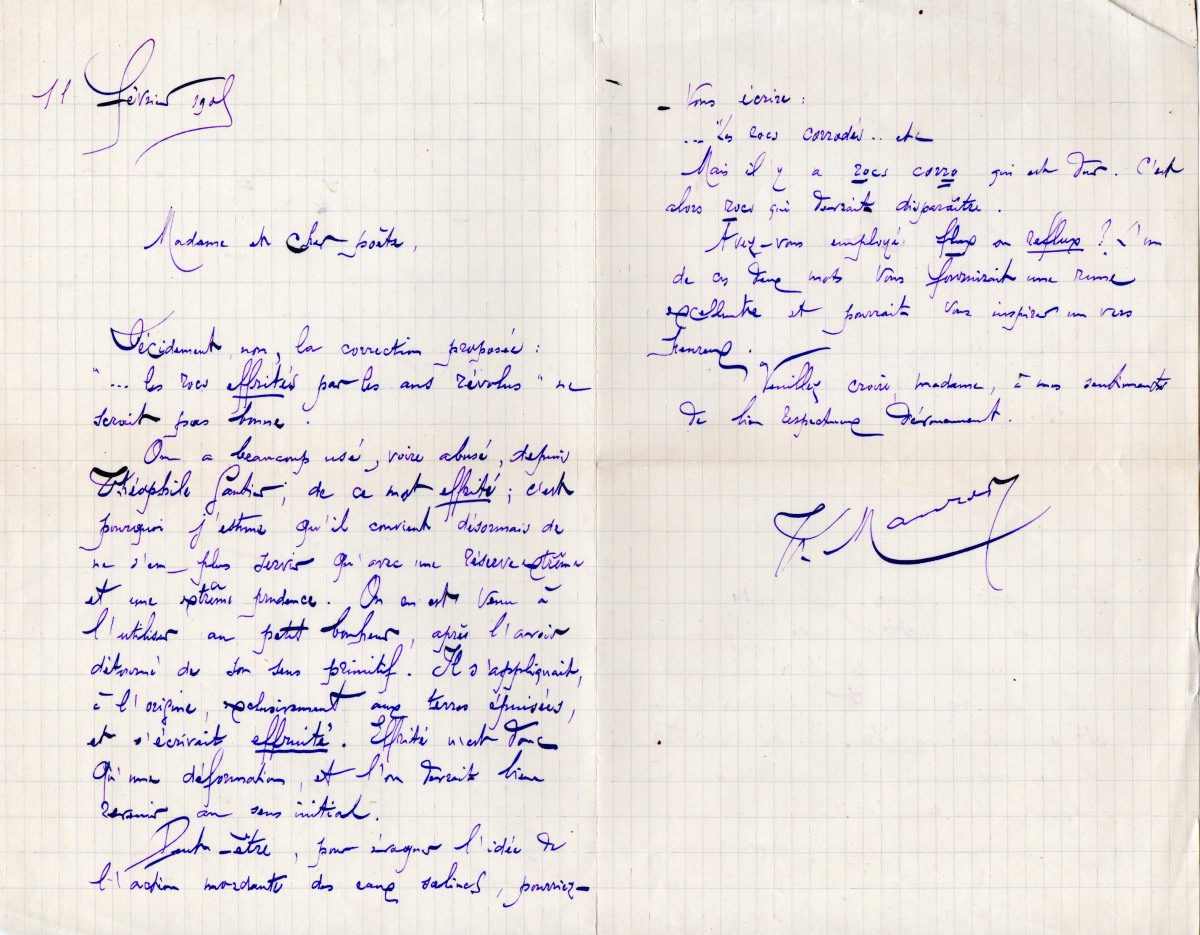 11 Février 190
Madame et cher poète,
Décidément, non, la correction proposée :
"... les rocs effrités par les ans révolus" ne
serait pas bonne.
On a beaucoup usé, voire abusé, depuis
Théophile Gautier, de ce mot effrité ; c'est
pourquoi j'estime qu'il convient désormais de
ne s'en plus servir qu'avec une réserve extrême
et une extrême prudence. On en est venu à
l'utiliser au petit bonheur, après l'avoir
détourné de son sens primitif. Il s'appliquait,
à l'origine, exclusivement aux terres épuisées,
et s'écrivait effruité. Effrité n'est donc
qu'une déformation, et l'on devrait bien
revenir au sens initial.
Peut-être, pour évoquer l'idée de
l'action mordante des eaux salines, pourriez-
vous écrire :
... "Les rocs corrodés .. etc
Mais il y a rocs corro qui est dur. C'est
alors rocs qui devrait disparaître.
Avez-vous employé flux ou reflux ? L'un
de ces deux mots vous fournirait une rime
excellente et pourrait vous inspirer un vers
heureux.
Veuillez croire, madame, à mes sentiments
de bien respectueux dévouement.